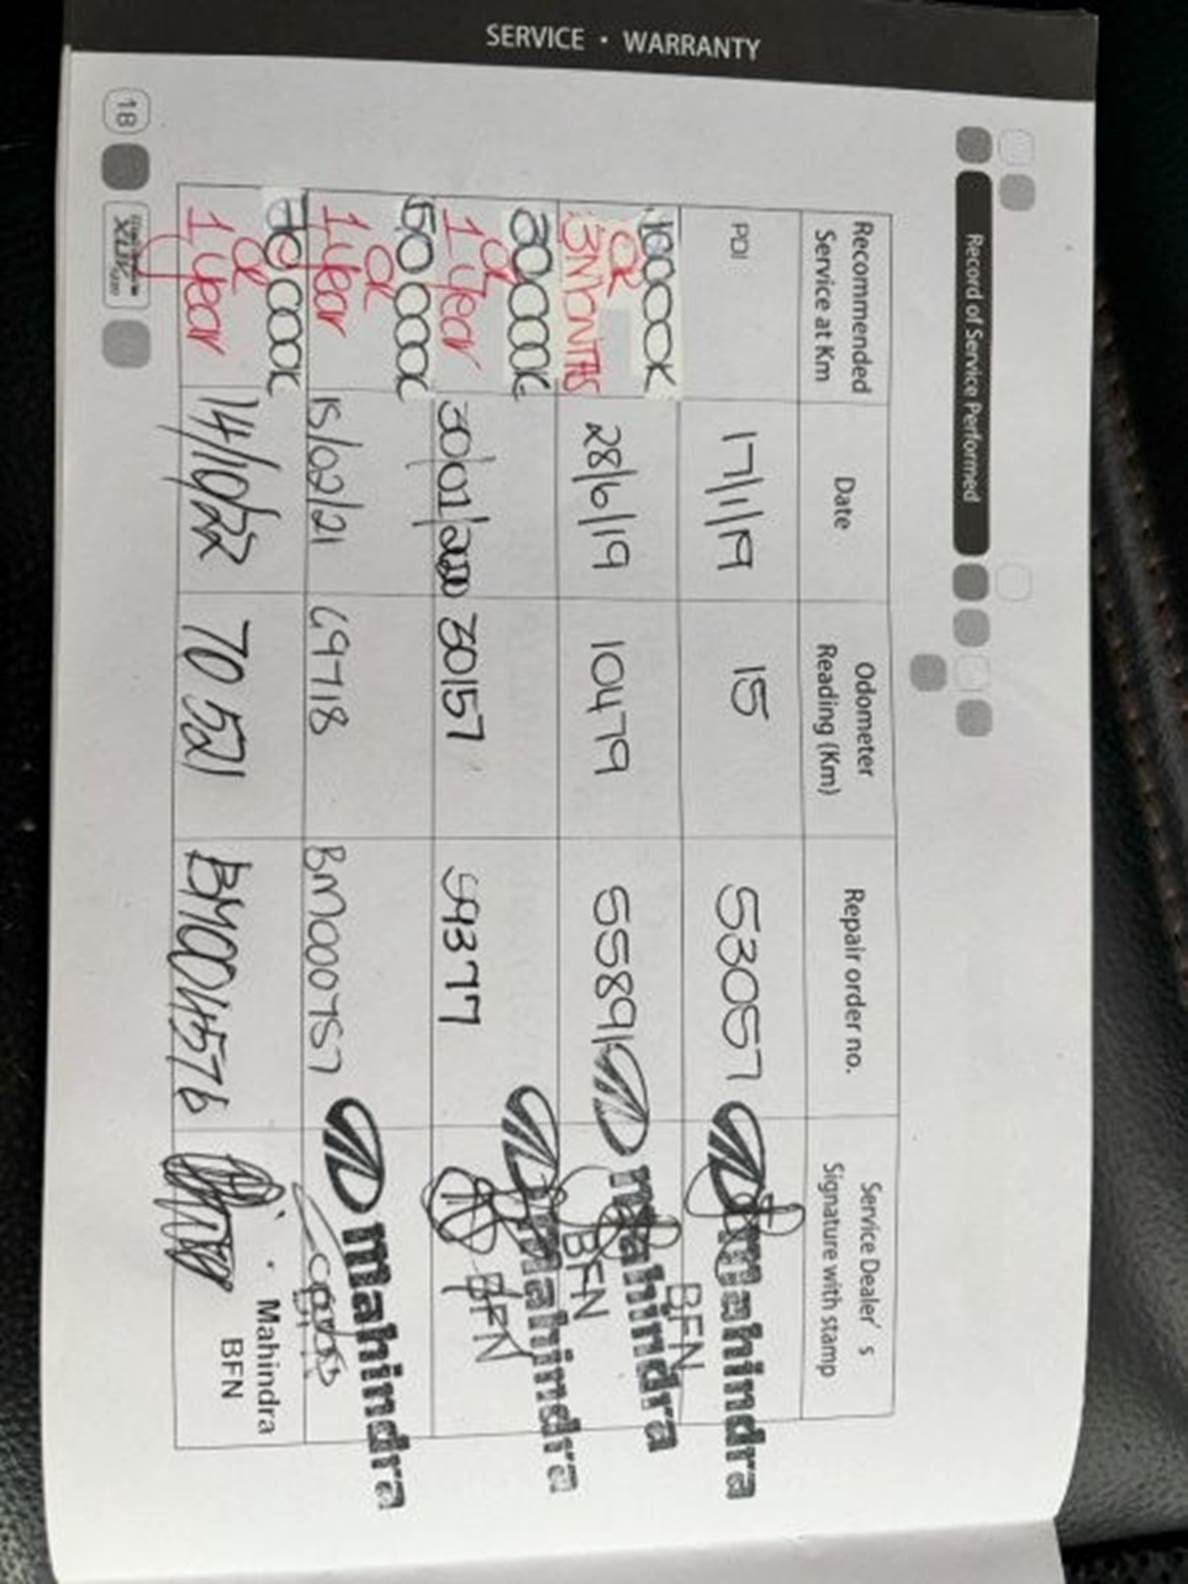 SERVICE • WARRANTY
Record of Service Performed
Recommended Service at Km
Date
Odometer Reading (Km)
Repair order no.
Service Dealer's Signature with stamp
PDI
17/1/19
15
53057
mahindra
BFN
10000K
OR
3MONTHS
28/6/19
10479
55891
mahindra
BFN
30000K
OR
1 year
30/01/2020
30157
59377
mahindra
BFN
50000K
OR
1 year
15/02/21
69718
BM000757
mahindra
70000K
OR
1 year
14/10/22
70521
BM004576
Mahindra
BFN
18